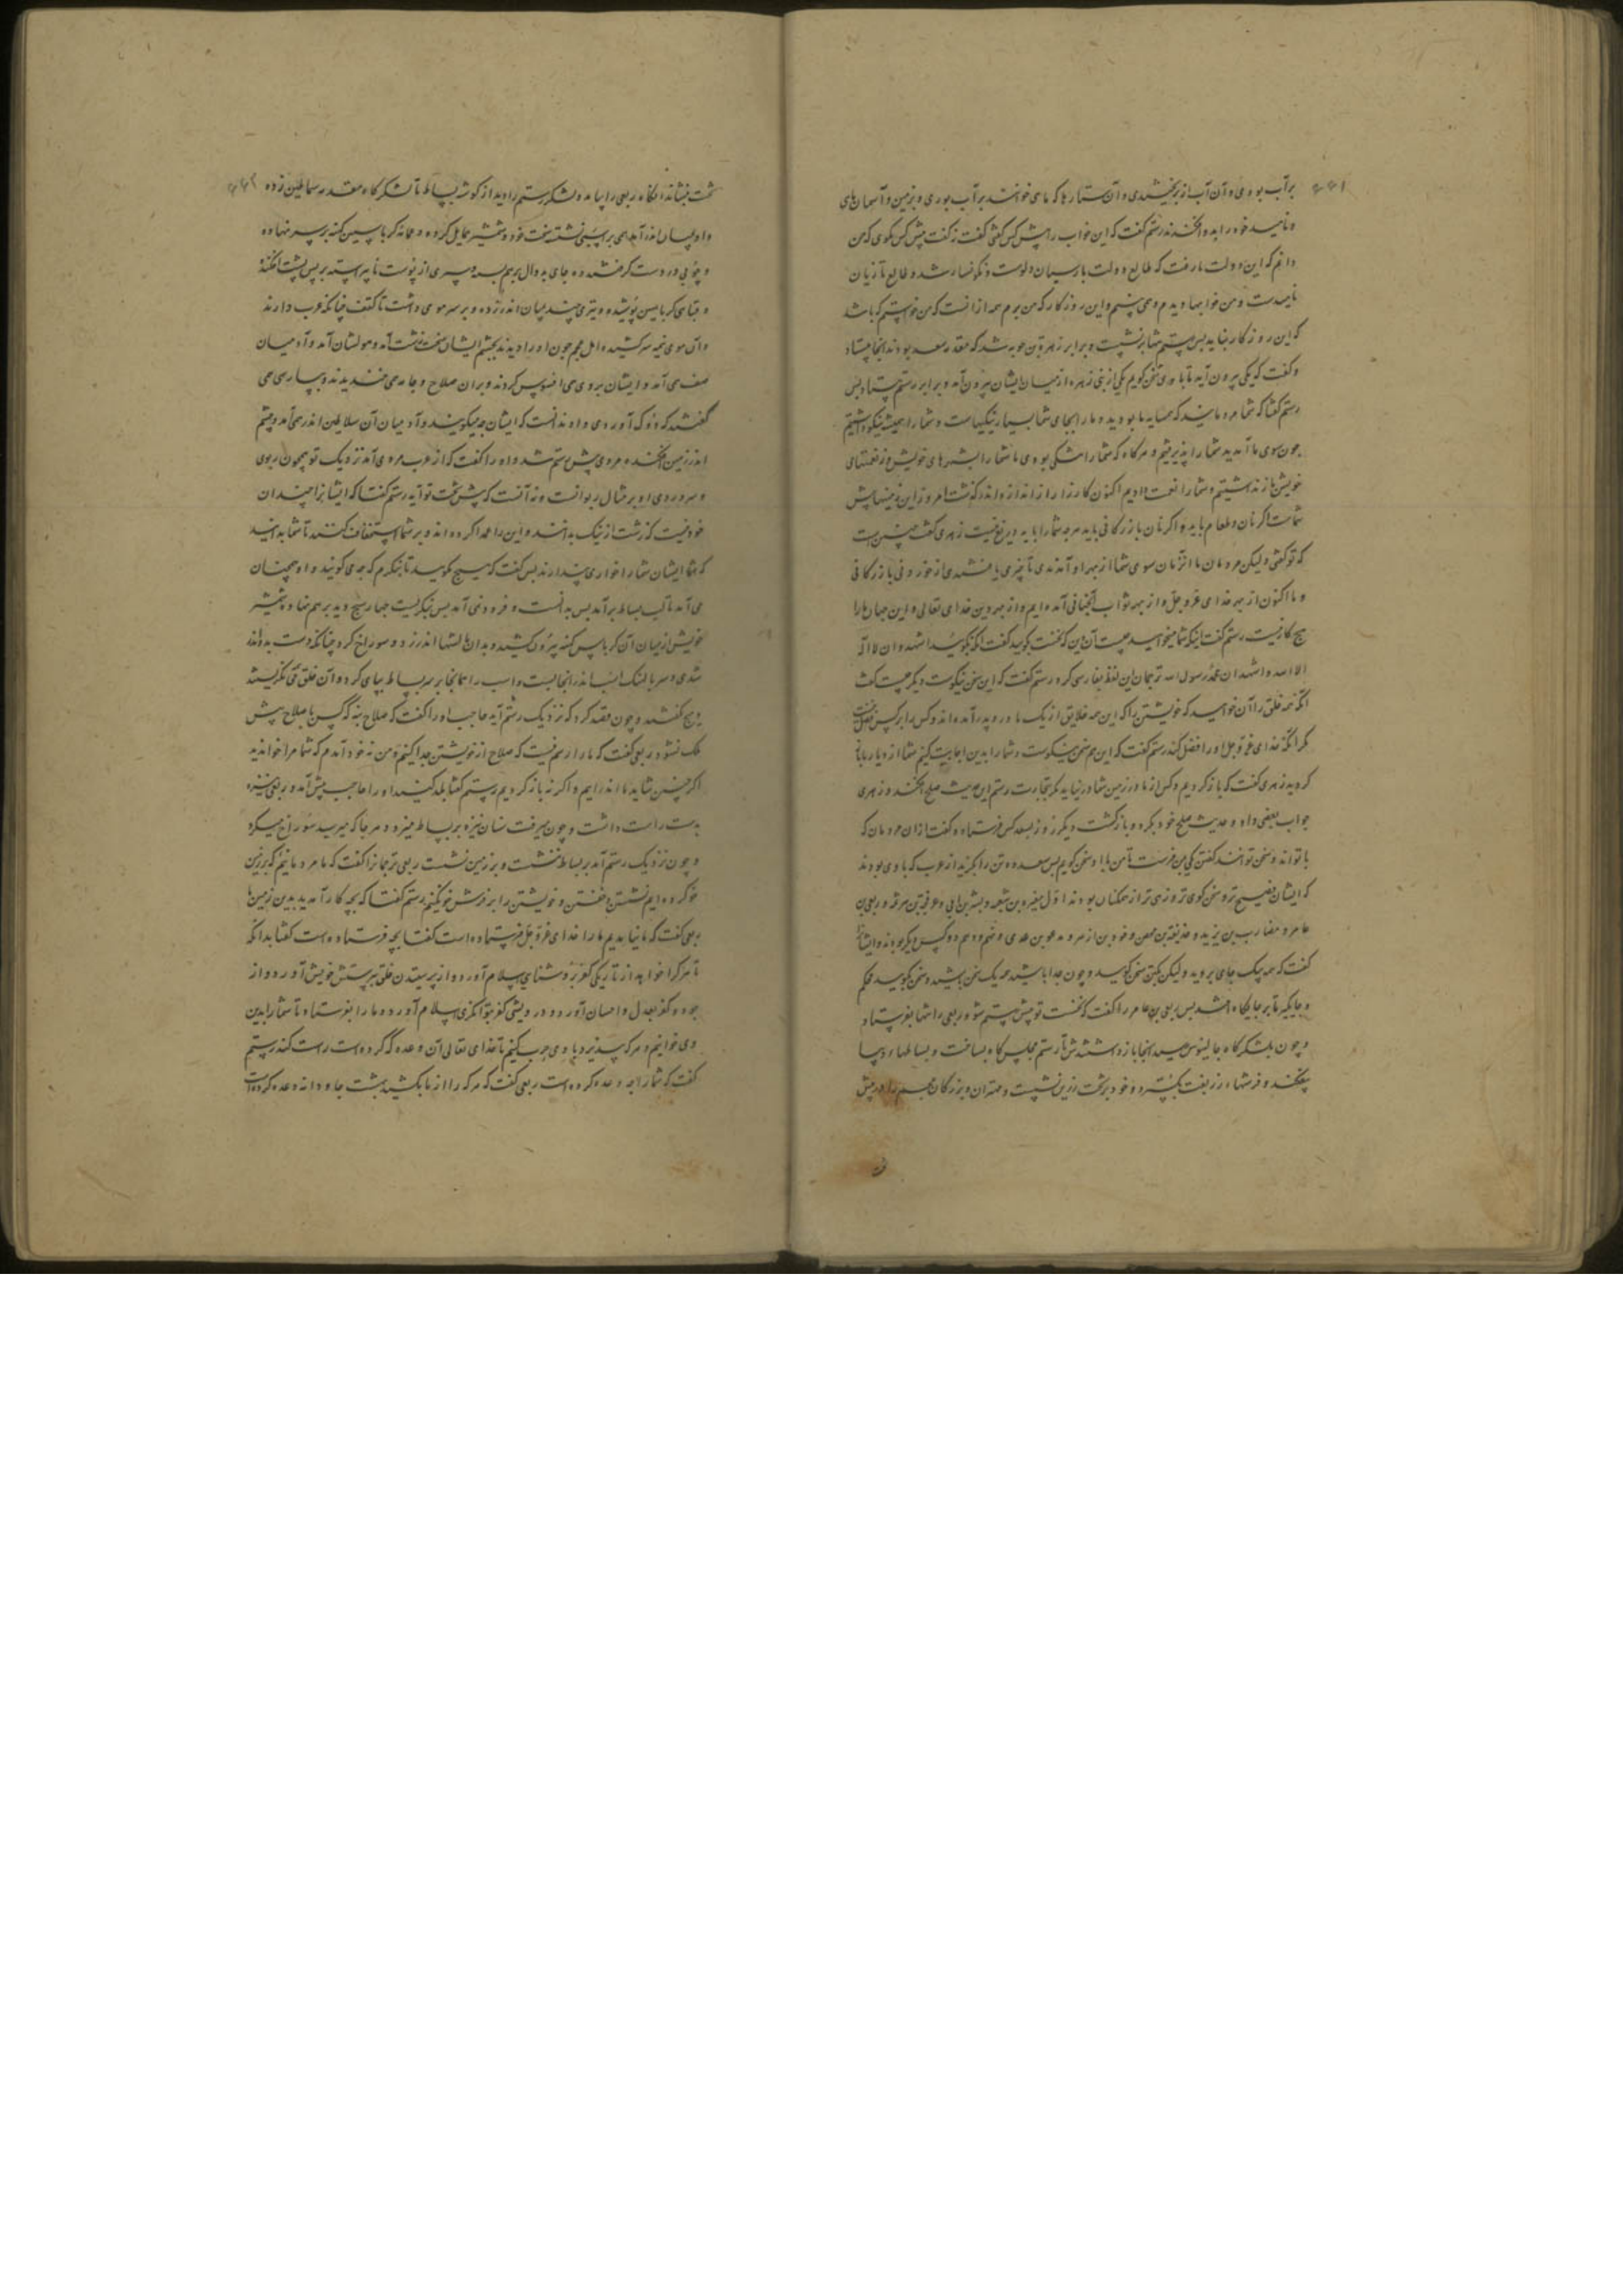 ۴۶۱
برآب بودی و آن آب از بر و آن ستارها که ماهی خوانند برآب بودی و بزمین و آسمان های
و خود را بدو رستم گفت که این خواب را پیش کس گفتی گفت نه گفت پیش کس مگوی که من
دانم که این دولت ما رفت که طالع دولت پارسیان و نگونسار شد و طالع تازیان
و من خوابها دیدم و می بینم و این روزگار که من برم همه از آنست که من خواستم که باشد
که این روزگار بیاید پس رستم بنشست و برابر زهرة بن حویه شد که مقدمه سعد بود آنجا بیستاد
و گفت که یکی بیرون آید تا با وی سخن گویم یکی از بنی زهره از میان ایشان بیرون آمد و برابر رستم بیستاد پس
رستم گفتا که شما مردمانید که همسایه ما بودید و ما را بجای شما بسیار نیکیهاست و شما را همیشه نیکو داشتیم
چون سوی ما آمدید شما را پذیرفتیم و هرگاه که شما را تنگی بودی ما شما را بشهرهای خویش و نعمتهای
خویش باز نداشتیم و شما را نعمت دادیم اکنون کارزار از اندازه اندر گذشت امروز این
شماست اگر نان و طعام باید و اگر نان بازرگانی باید هرچه شما را باید دریغ نیست زهری گفت چنین است
که تو گفتی ولیکن مردمان ما آنزمان سوی شما از بهر آن آمدندی تا چیزی یافتندی از خوردنی یا بازرگانی
و ما اکنون از بهر خدای عز و جل و از بهر ثواب آنجهانی آمده ایم و از بهر دین خدای تعالی و این جهان ما را
هیچ کار نیست رستم گفت اینکه شما میخواهید چیست آن دین که نخست گوئید گفت آنکه بگوئید اشهد ان لا اله
الا الله و اشهد ان محمد رسول الله ترجمان این لفظ بپارسی کرد رستم گفت که این سخن نیکوست دیگر چیست گفت
آنکه همه خلق را آن خواهید که خویشتن را که این همه خلایق از یک مادر و پدر آمده اند و کس را بر کس فضل نیست
مگر آنکه خدای عز و جل او را فضل کند رستم گفت که این هم سخن نیکوست و شما را بدین اجابت کنیم شما از دیار ما باز
گردید زهری گفت که باز گردیم و کس از ما در زمین شما در نیاید مگر بتجارت رستم این حدیث صلح افکند و زهری
جواب بعضی داد و حدیث صلح خود نکرد و بازگشت دیگر روز بسعد کس فرستاد و گفت از آن مردمان که
با تو اند و سخن توانند گفتن یکی بمن فرست تا من با او سخن گویم پس سعد ده تن را بگزید از عرب که با وی بودند
که ایشان فصیح تر و سخن گوی تر و زیرک تر از همگنان بودند اول مغیره بن شعبه و بشر بن ابی و عرفجه بن هرثمه و ربعی بن
عامر و مضارب بن یزید و حذیفة بن محصن و دو کس دیگر بودند و ایشانرا
گفت که همه بیک جای بروید ولیکن یکتن سخن گوئید و چون جدا باشید همه یک سخن باشید و سخن گوئید محکم
و جایگیر تا بر جایگاه باشد پس ربعی بن عامر را گفت که نخست تو پیش رستم شو و ربعی را تنها بفرستاد
و چون بلشکرگاه جالینوس رسید آنجا باز داشتندش تا رستم مجلس گاه بساخت و بساطهاء دیبا
بیفکندند و فرشهاء زربفت بگسترد و خود بر تخت زرین نشست و مهتران و بزرگان عجم را در پیش
۴۶۲
تخت بنشاند آنگاه ربعی را بیامد و لشکر رستم را دید از گوشه بساط تا لشکرگاه مقدمه سماطین زده
و او بمیان اندر آمد همی بر اسبی نشسته سخت خرد و شمشیر حمایل کرده و عمامه کرباسین کهنه بر سر نهاده
و چوبی در دست گرفته ده جای بدوال برهم بسته و سپری از پوست ناپیراسته بر پس پشت افکنده
و قبای کرباسین پوشیده و تیری چند بمیان اندر زده و بر سر موی داشت تا کتف چنانکه عرب دارند
و آن موی همه سر کشیده اهل عجم چون او را دیدند بچشم ایشان سخت زشت آمد و هولشان آمد و او میان
صف می آمد و ایشان بر وی می افسوس کردند و بر آن سلاح و جامه می خندیدند و بپارسی می
گفتند که دوک آوردی و او ندانست که ایشان چه میگویند و او میان آن سماطین اندر همی آمد و چشم
اندر زمین افکنده مردی پیش رستم شد و او را گفت که از عرب مردی آمد نزدیک تو همچون دیوی
و سر و روی او بر مثال دیوانست و نه آنست که پیش تخت تو آید رستم گفتا که ایشانرا چندان
خرد نیست که زشت از نیک بدانند و این را عمدا کرده اند و بر شما استخفاف کنند تا شما بدانید
که شما ایشان شما را خوار می پندارند پس گفت که هیچ مگوئید تا بنگرم که چه می گویند و او همچنان
می آمد تا لب بساط برآمد پس بدانست و فرود نمی آمد پس بنگریست چهار نهاده شمشیر
خویش از میان آن کرباس کهنه بیرون کشید و بدان بالشها اندر زد و سوراخ کرد چنانکه دست بدو اندر
شدی و سر پالهنگ اسب اندر آنجا بست و اسب را همانجا بر سر بساط بپای کرد و آن خلق می نگریستند
و هیچ نگفتند و چون قصد کرد که نزدیک رستم آید حاجب او را گفت که سلاح بنه که کس با سلاح پیش
ملک نشود ربعی گفت که ما را رسم نیست که سلاح از خویشتن جدا کنیم و من نه خود آمدم که شما مرا خواندید
اگر چنین شاید ما اندر آییم و اگر نه باز گردیم رستم گفتا بلکه کنید او را حاجب پیش آمد و ربعی نیزه
بدست راست داشت و چون میرفت سنان نیزه بر بساط میزد و هر جا که میرسید سوراخ میکرد
و چون نزدیک رستم آمد بر بساط ننشست و بر زمین نشست ربعی ترجمانرا گفت که ما مردمانیم که بر زمین
خو کرده ایم نشستن و خفتن و خویشتن را بر فرش خو نکنیم رستم گفتا که بچه کار آمدید بدین زمین ما
ربعی گفت که ما نیامدیم ما را خدای عز و جل فرستاده است گفتا بچه فرستاده است گفتا بدانکه
تا هر کرا خواهد از تاریکی کفر بروشنای اسلام آورد و از پرستیدن خلق بپرستش خویش آورد و از
جور و کفر بعدل و احسان آورد و درویشی کفر بتوانگری اسلام آورد و ما را بفرستاد تا شما را بدین
وی خوانیم و هر که نپذیرد با وی حرب کنیم تا خدای تعالی آن وعده که کرده است راست کند رستم
گفت که شما را چه وعده کرده است ربعی گفت که هر که را از ما بکشید بهشت جاودانه وعده کرده است